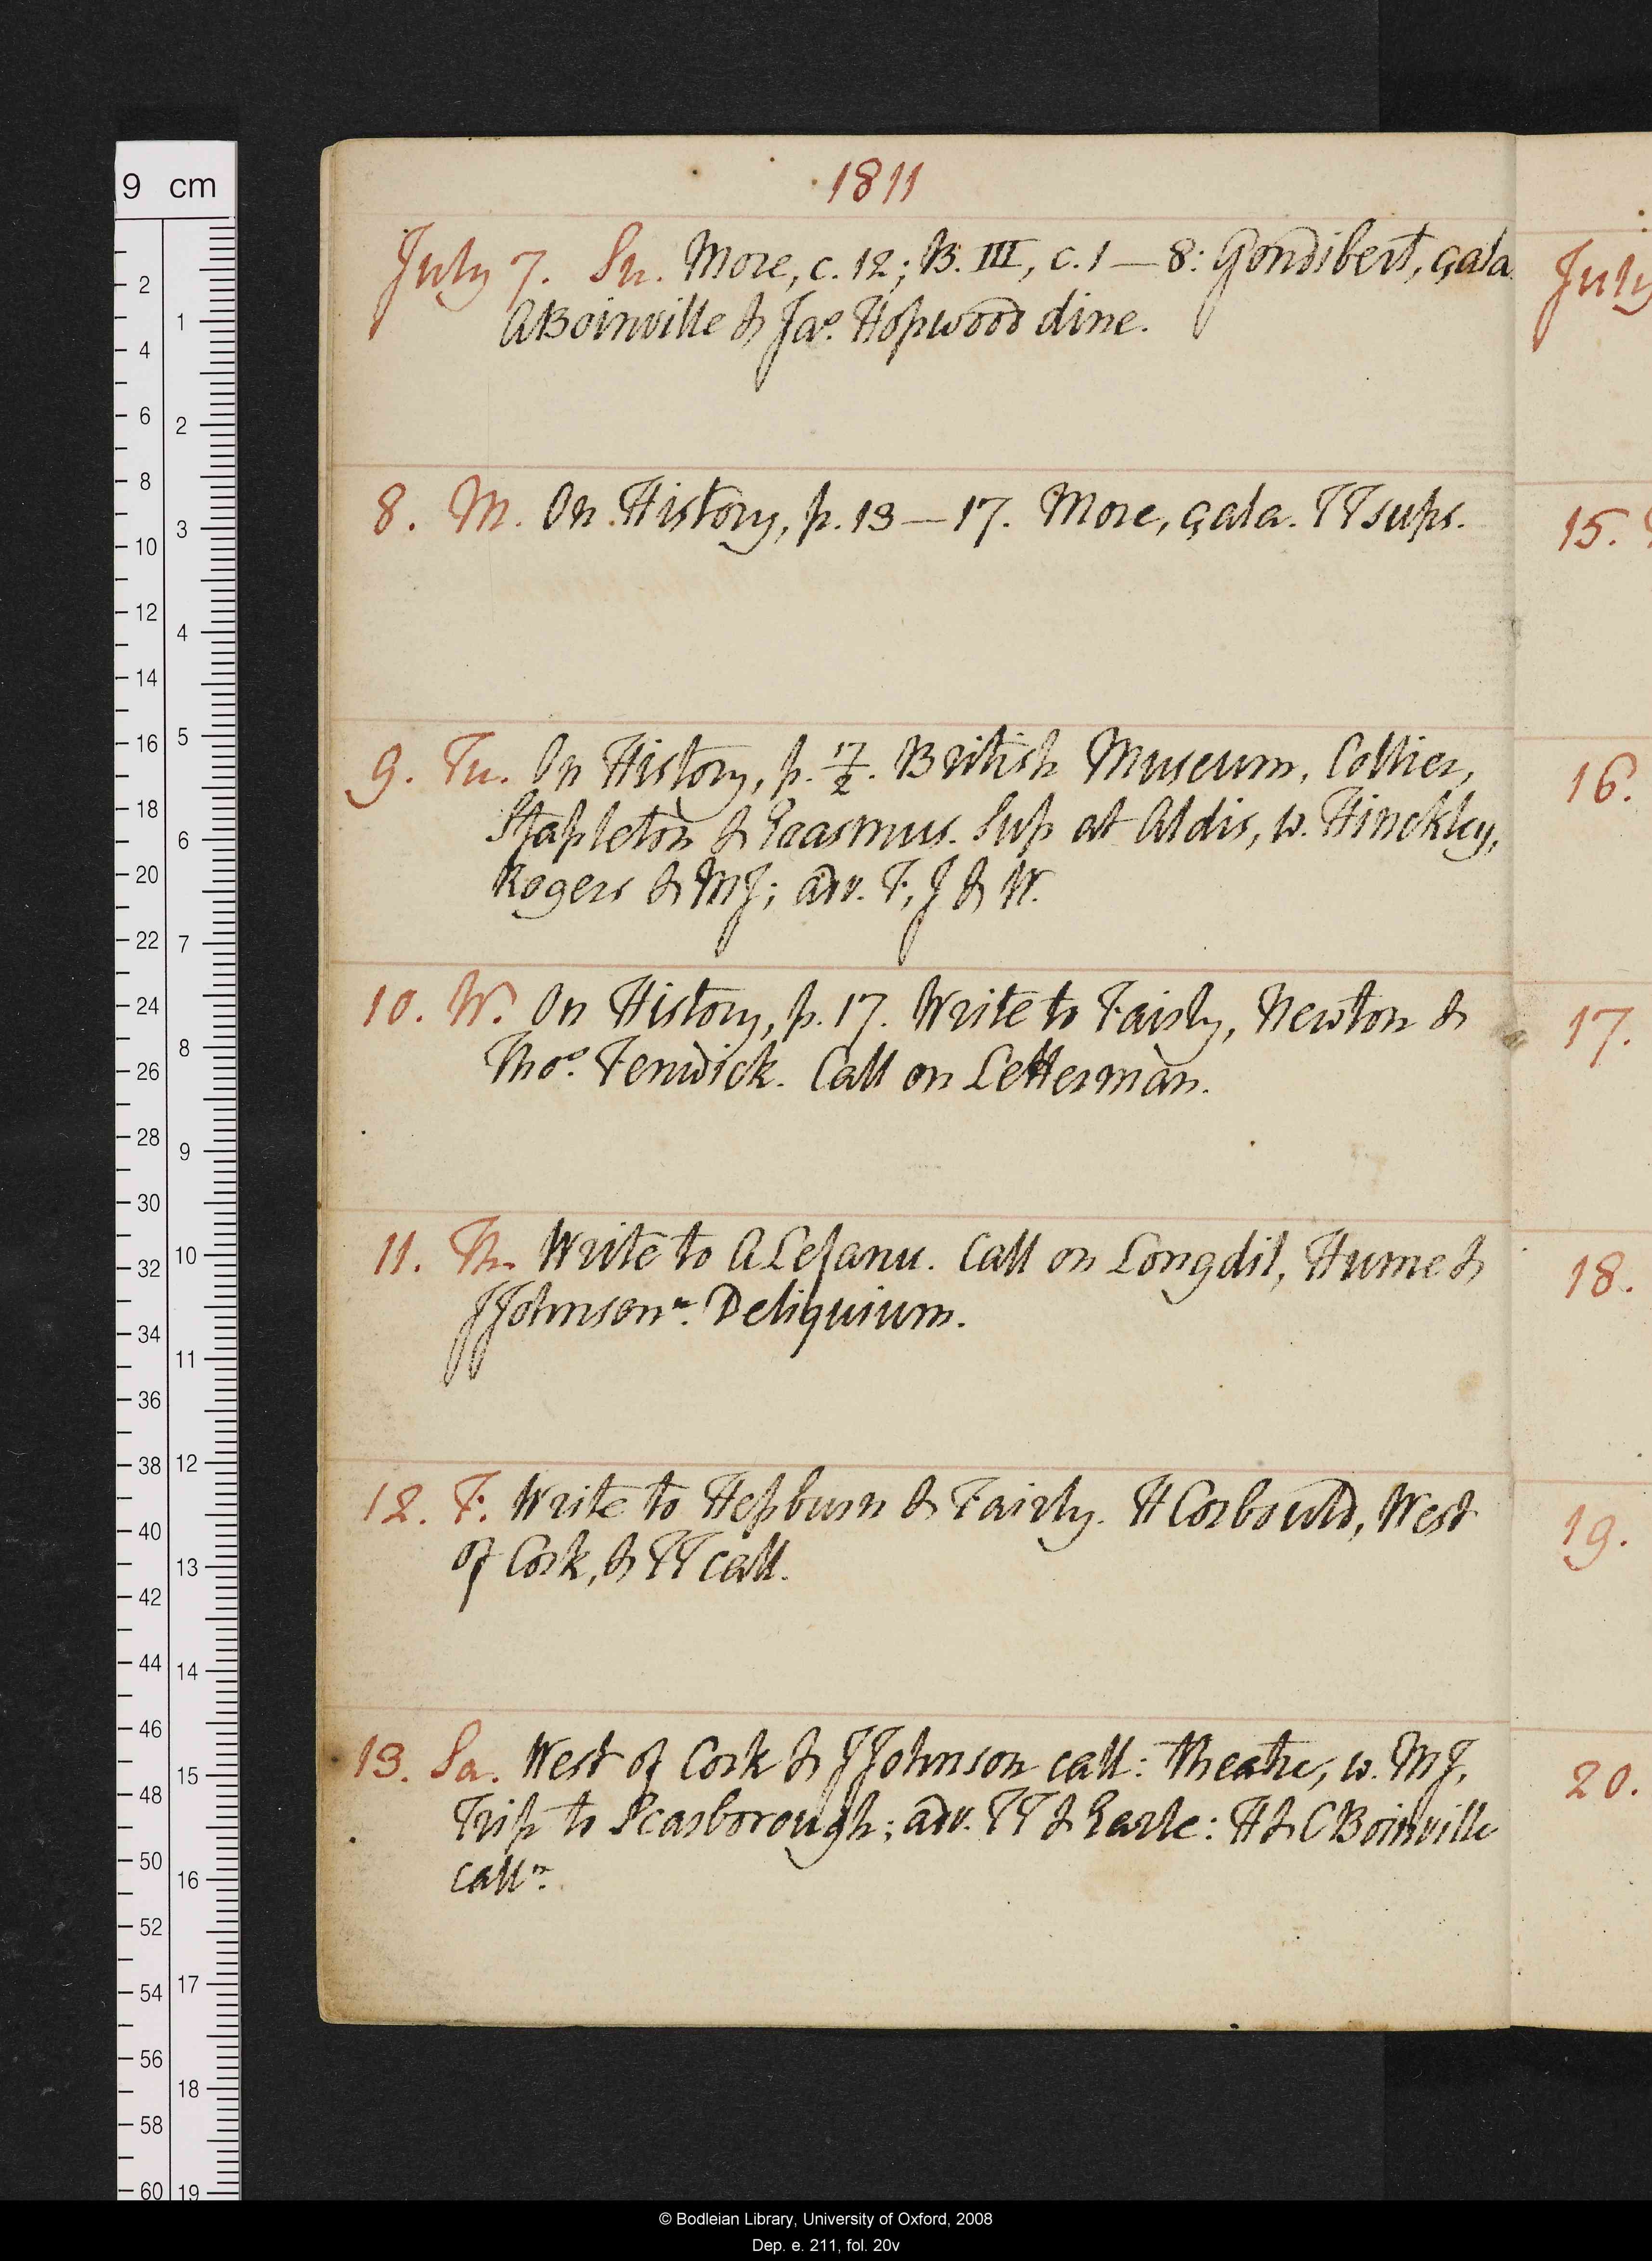 9 cm
1811
July 7. Su. More, c. 12; B. III, c. 1 — 8: Gondibert, çala.
ABoinville & Jas. Hopwood dine.
8. M. On History, p. 13 — 17. More, çala. TT sups.
9. Tu. On History, p. 17/2. British Museum, Collier,
Stapleton & Erasmus. Sup at Aldis, w. Hinckley,
Rogers & MJ; adv. F, J & W.
10. W. On History, p. 17. Write to Fairly, Newton &
Thos. Fenwick. Call on Letterman.
11. Th. Write to A Lefanu. Call on Longdil, Hume &
JJohnson n. Deliquium.
12. F. Write to Hepburn & Fairly. H Corbould, West
of Cork, & TT call.
13. Sa. West of Cork & JJohnson call: theatre, w. MJ,
Trip to Scarborough; adv. TT & Earle: H & C Boinville
call n.
July
15.
16.
17.
18.
19.
20.
© Bodleian Library, University of Oxford, 2008
Dep. e. 211, fol. 20v